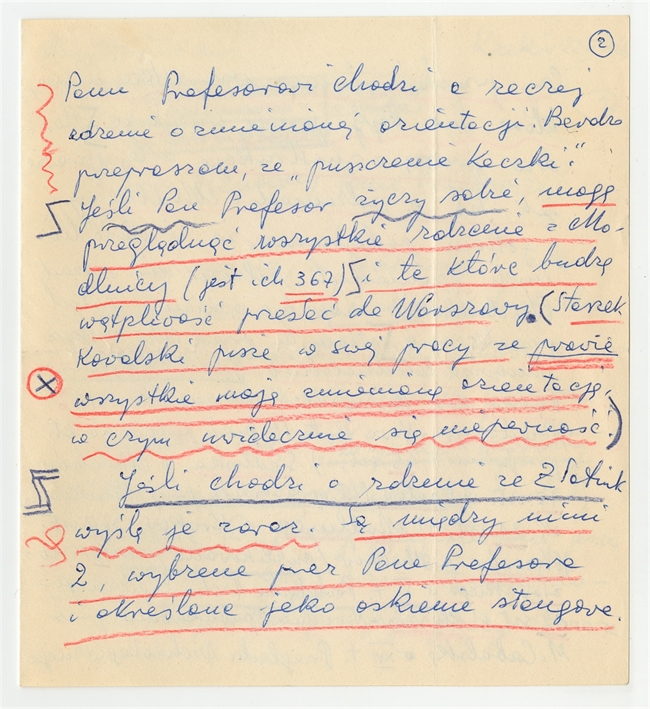 2
Panu Profesorowi chodzi o raczej
rdzenie o zmienionej orientacji. Bardzo
przepraszam, za "puszczenie Kaczki".
Jeśli Pan Profesor życzy sobie, mogę
przeglądnąć wszystkie rdzenie z Mo-
dlnicy (jest ich 367) i te które budzą
wątpliwość przesłać do Warszawy. (Staszek
Kowalski pisze w swej pracy że prawie
wszystkie mają zmienioną orientację,
w czym uwidacznia się niepewność.)
Jeśli chodzi o rdzenie ze Złotnik
wyślę je zaraz. Są między nimi
2, wybrane przez Pana Profesora
i określone jako łoskienie stangove.